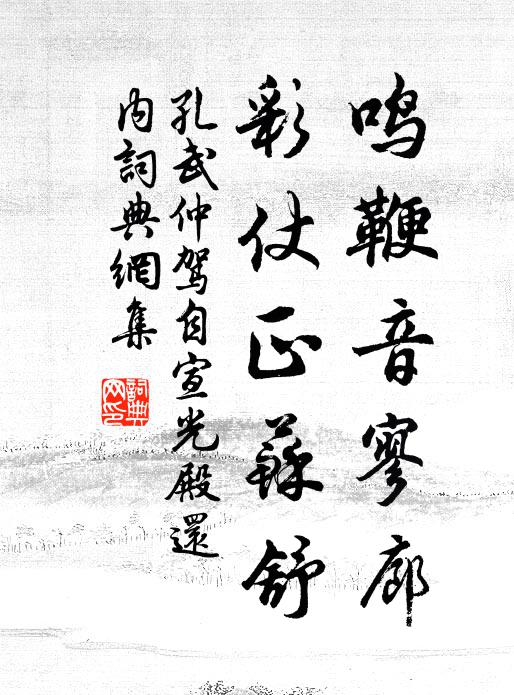 鳴鞭音寥廊
彩仗正蘇舒
孔武仲駕自宣光殿還
內詞典網集
詞典網印